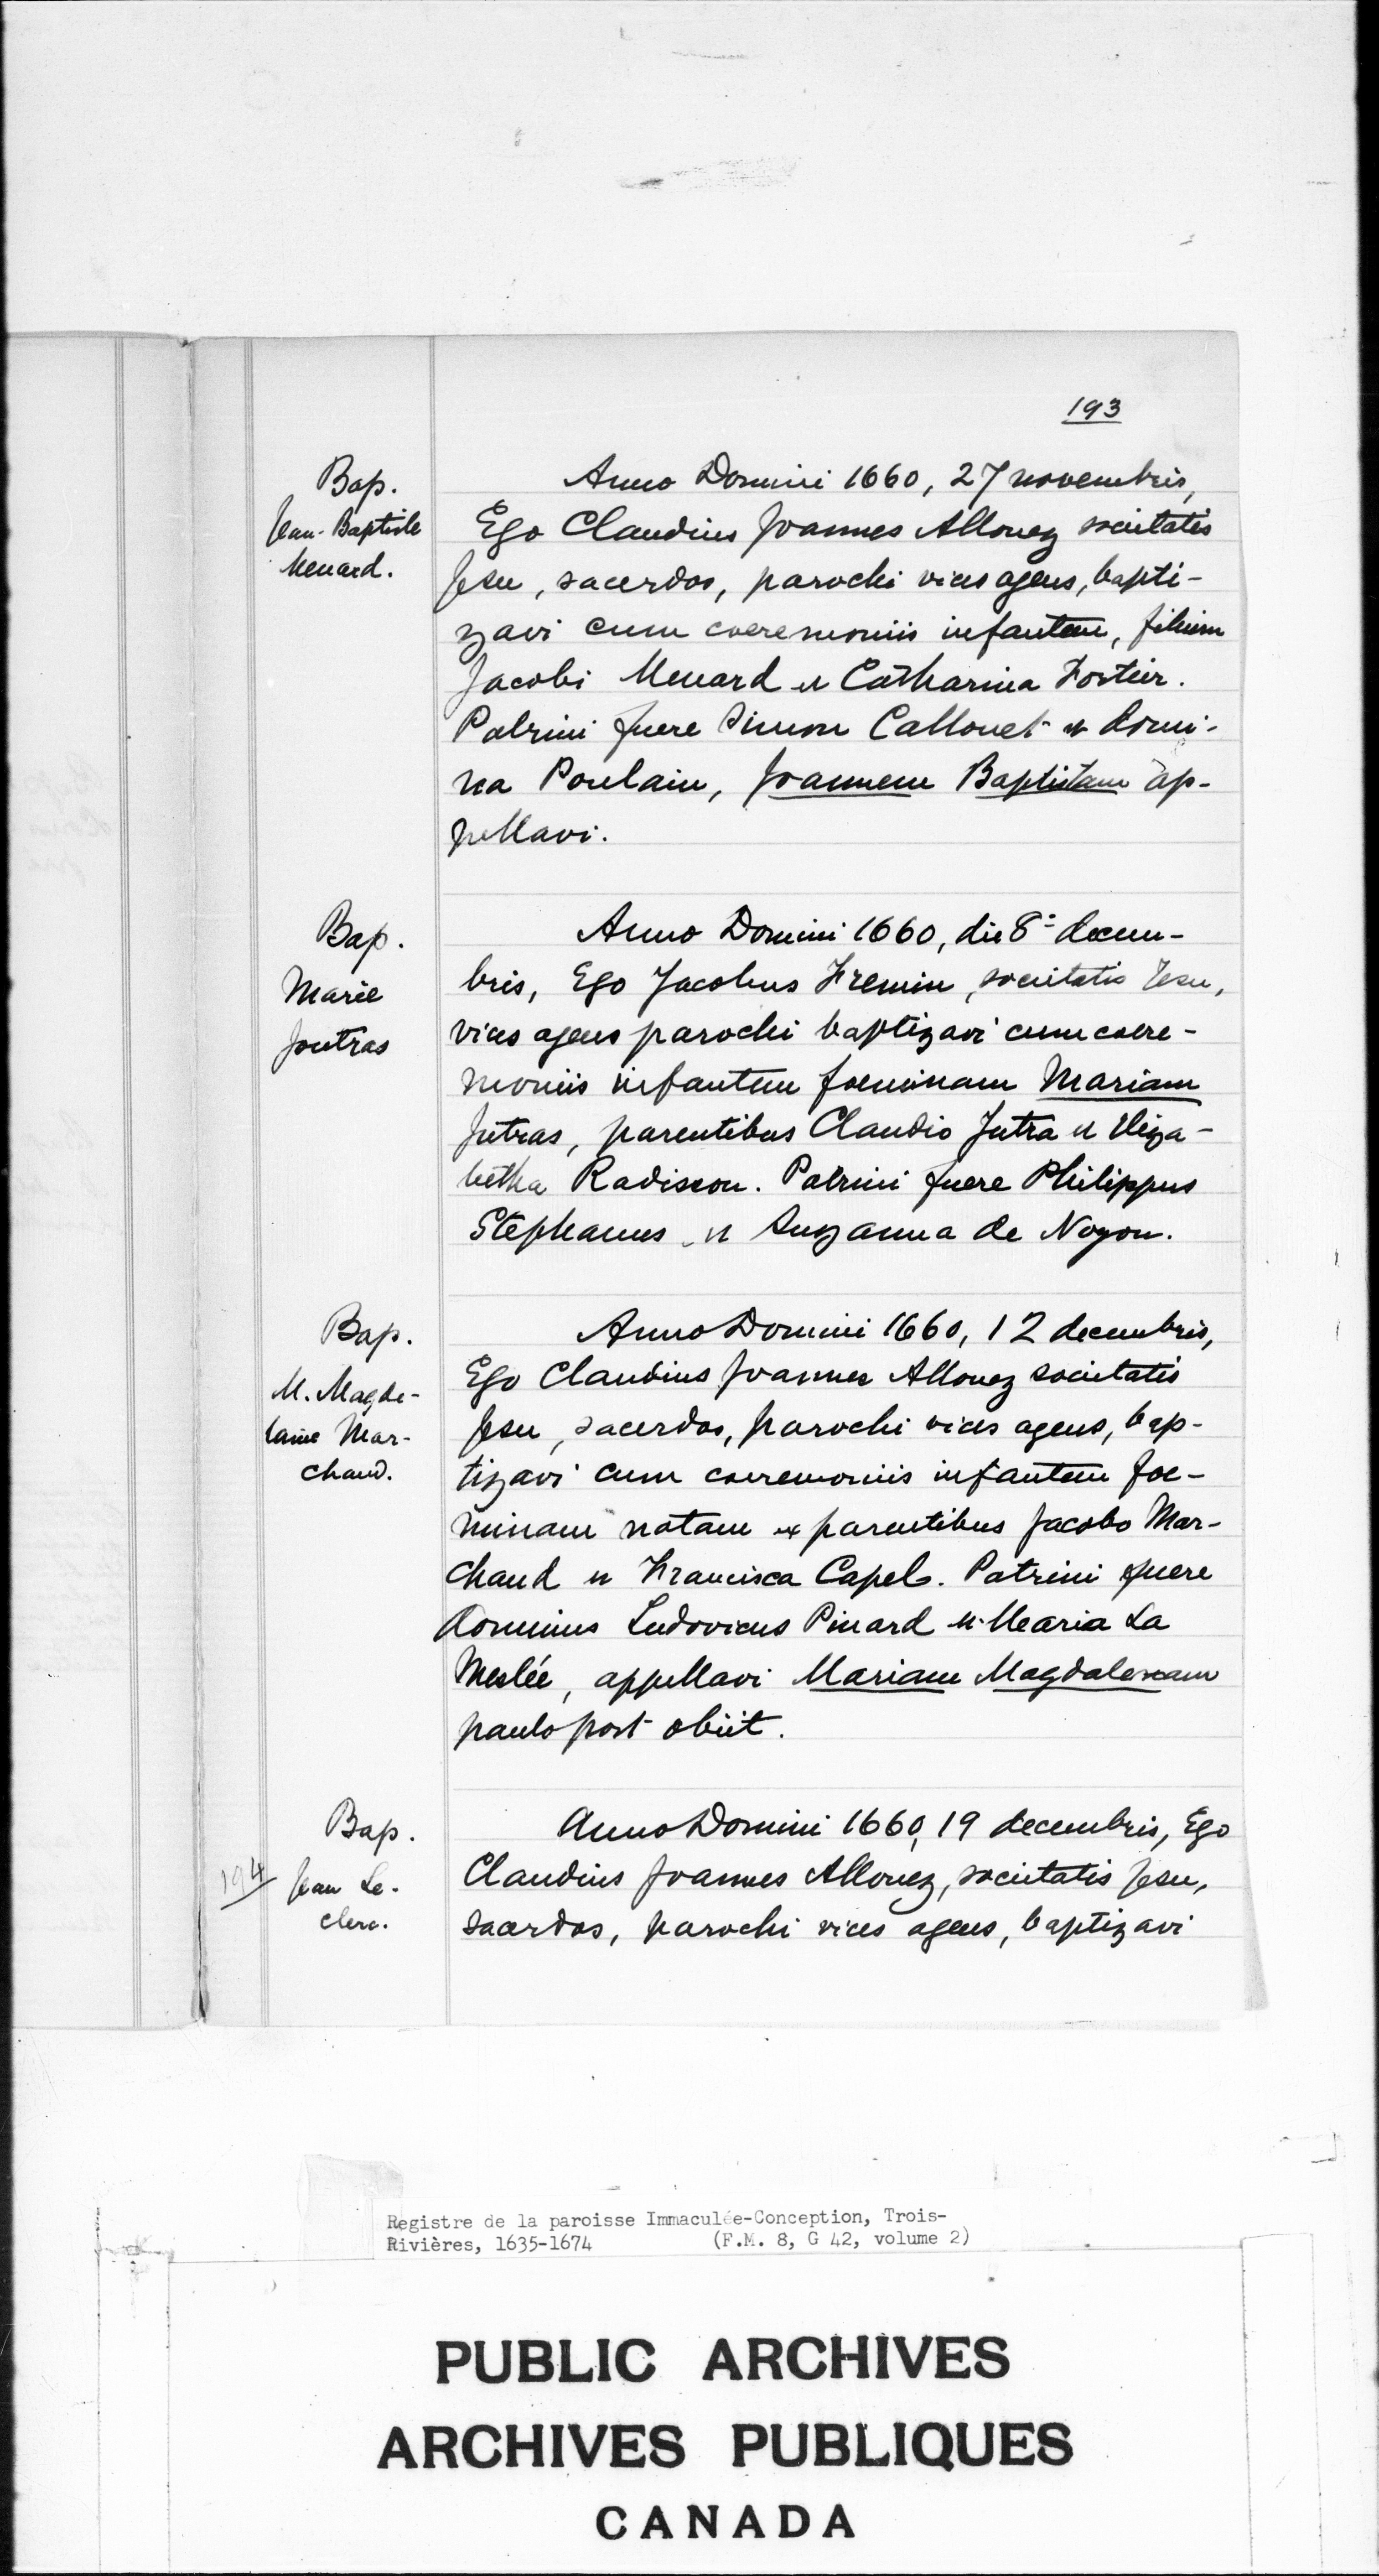 193
Bap.
Jean-Baptiste
Menard.
Anno Domini 1660, 27 novembris,
Ego Claudius Joannes Allouez societatis
Jesu, sacerdos, parochi vices agens, bapti-
zavi cum coeremoniis infantem, filium
Jacobi Menard et Catharina Fortier.
Patrini fuere Simon Callouet et domi-
na Poulain, Joannem Baptistam ap-
pellavi.
Bap.
Marie
Joutras
Anno Domini 1660, die 8ª decem-
bris, Ego Jacobus Fremin, societatis Jesu,
vices agens parochi baptizavi cum coere-
moniis infantem foeminam Mariam
Jutras, parentibus Claudio Jutra et Eliza-
betha Radisson. Patrini fuere Philippus
Stephanus et Suzanna de Noyon.
Bap.
M. Magde-
laine Mar-
chand.
Anno Domini 1660, 12 decembris,
Ego Claudius Joannes Allouez societatis
Jesu, sacerdos, parochi vices agens, bap-
tizavi cum coeremoniis infantem foe-
minam natam ex parentibus Jacobo Mar-
chand et Francisca Capel. Patrini fuere
dominus Ludovicus Pinard et Maria La
Meslée, appellavi Mariam Magdalenam
paulo post obiit.
Bap.
194
Jean Le-
clerc.
Anno Domini 1660, 19 decembris, Ego
Claudius Joannes Allouez, societatis Jesu,
sacerdos, parochi vices agens, baptizavi
Registre de la paroisse Immaculée-Conception, Trois-
Rivières, 1635-1674 (F.M. 8, G 42, volume 2)
PUBLIC ARCHIVES
ARCHIVES PUBLIQUES
CANADA